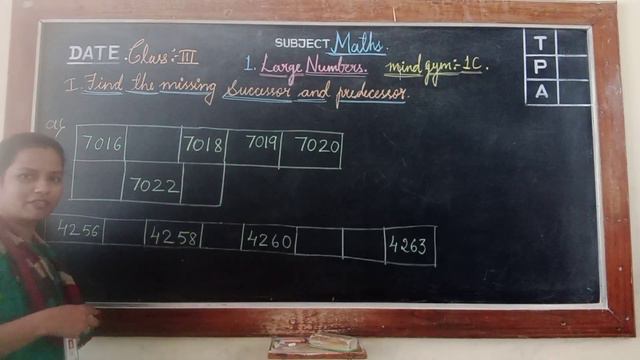 SUBJECT Maths.
DATE. Class:-III
1. Large Numbers. mind gym:-1C.
I. Find the missing Successor and predecessor.
T
P
A
a)
7016 7018 7019 7020
7022
4256 4258 4260 4263